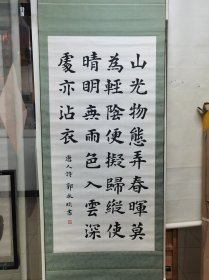 山光物態弄春暉莫
為輕陰便擬歸縱使
晴明無雨色入雲深
處亦沾衣
唐人詩